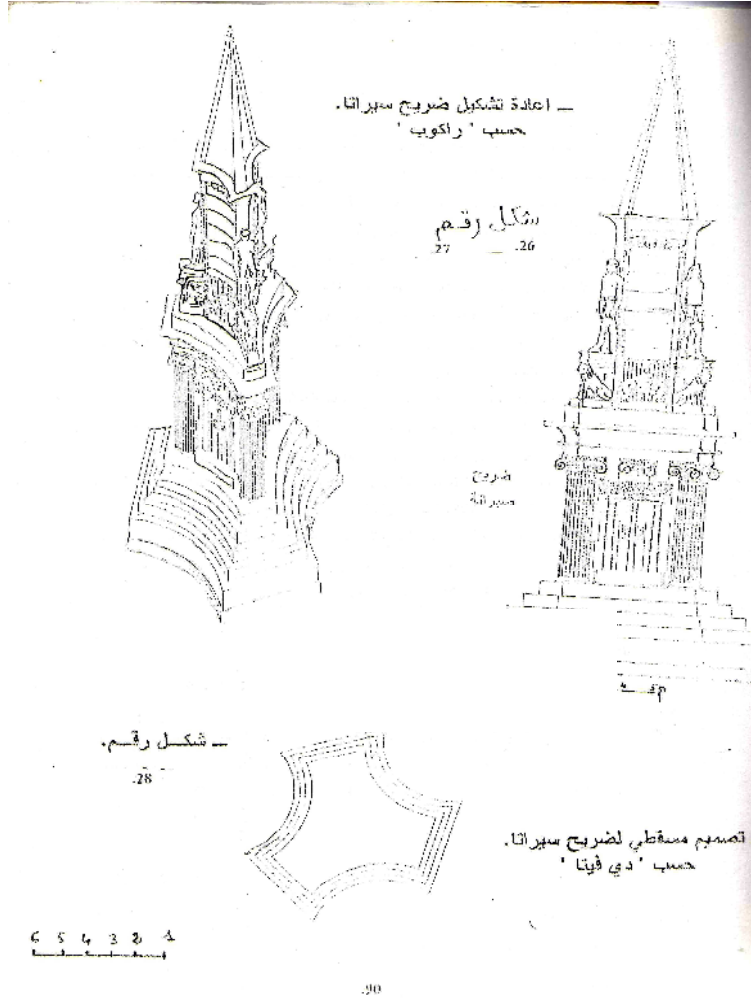 ـ اعادة تشكيل ضريح سيراتا.
حسب ' راكوب '
شكل رقم
27 _ 26.
ضريح
سيراتة
ـ شكـل رقـم.
28.
تصميم مسقطي لضريح سيراتا.
حسب ' دي فيتا '
6 5 4 3 2 1
90.